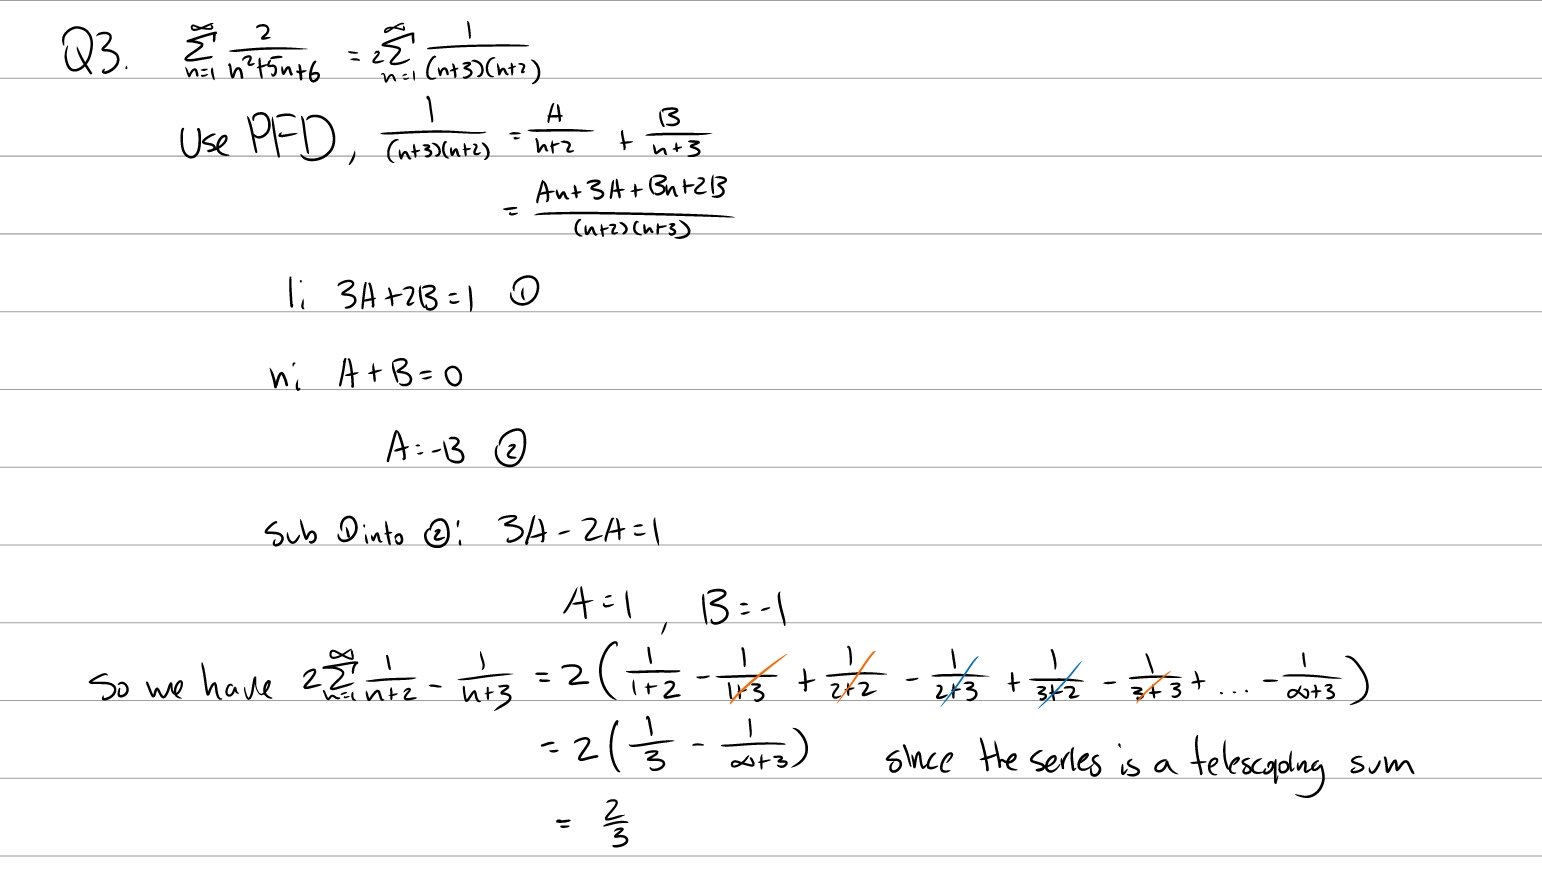 Q3. \sum_{n=1}^{\infty} \frac{2}{n^2+5n+6} = 2\sum_{n=1}^{\infty} \frac{1}{(n+3)(n+2)}
Use PFD, \frac{1}{(n+3)(n+2)} = \frac{A}{n+2} + \frac{B}{n+3}
= \frac{An+3A+Bn+2B}{(n+2)(n+3)}
1; 3A+2B=1 ①
n; A+B=0
A=-B ②
Sub ① into ②: 3A-2A=1
A=1, B=-1
So we have 2\sum_{n=1}^{\infty} \frac{1}{n+2} - \frac{1}{n+3} = 2(\frac{1}{1+2} - \frac{1}{1+3} + \frac{1}{2+2} - \frac{1}{2+3} + \frac{1}{3+2} - \frac{1}{3+3} + ... - \frac{1}{\infty+3})
= 2(\frac{1}{3} - \frac{1}{\infty+3}) since the series is a telescoping sum
= \frac{2}{3}